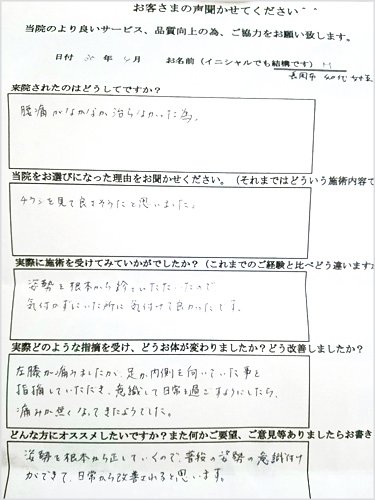 お客さまの声聞かせてください^ ^
当院のより良いサービス、品質向上の為、ご協力をお願い致します。
日付 30 年 4 月 お名前(イニシャルでも結構です) M
長岡市 40代 女性
来院されたのはどうしてですか?
腰痛がなかなか治らなかった為。
当院をお選びになった理由をお聞かせください。(それまではどういう施術内容で
チラシを見て良さそうだと思いました。
実際に施術を受けてみていかがでしたか?(これまでのご経験と比べどう違います
姿勢を根本から診ていただいたので
気付かずにいた所に気付けて良かったです。
実際どのような指摘を受け、どうお体が変わりましたか?どう改善しましたか?
左膝が痛みましたが、足が内側を向いていた事を
指摘していただき、意識して日常を過ごすようにしたら、
痛みが無くなってきたようでした。
どんな方にオススメしたいですか?また何かご要望、ご意見等ありましたらお書き
姿勢を根本から正していくので、普段の姿勢の意識付け
ができて、日常から改善されると思います。